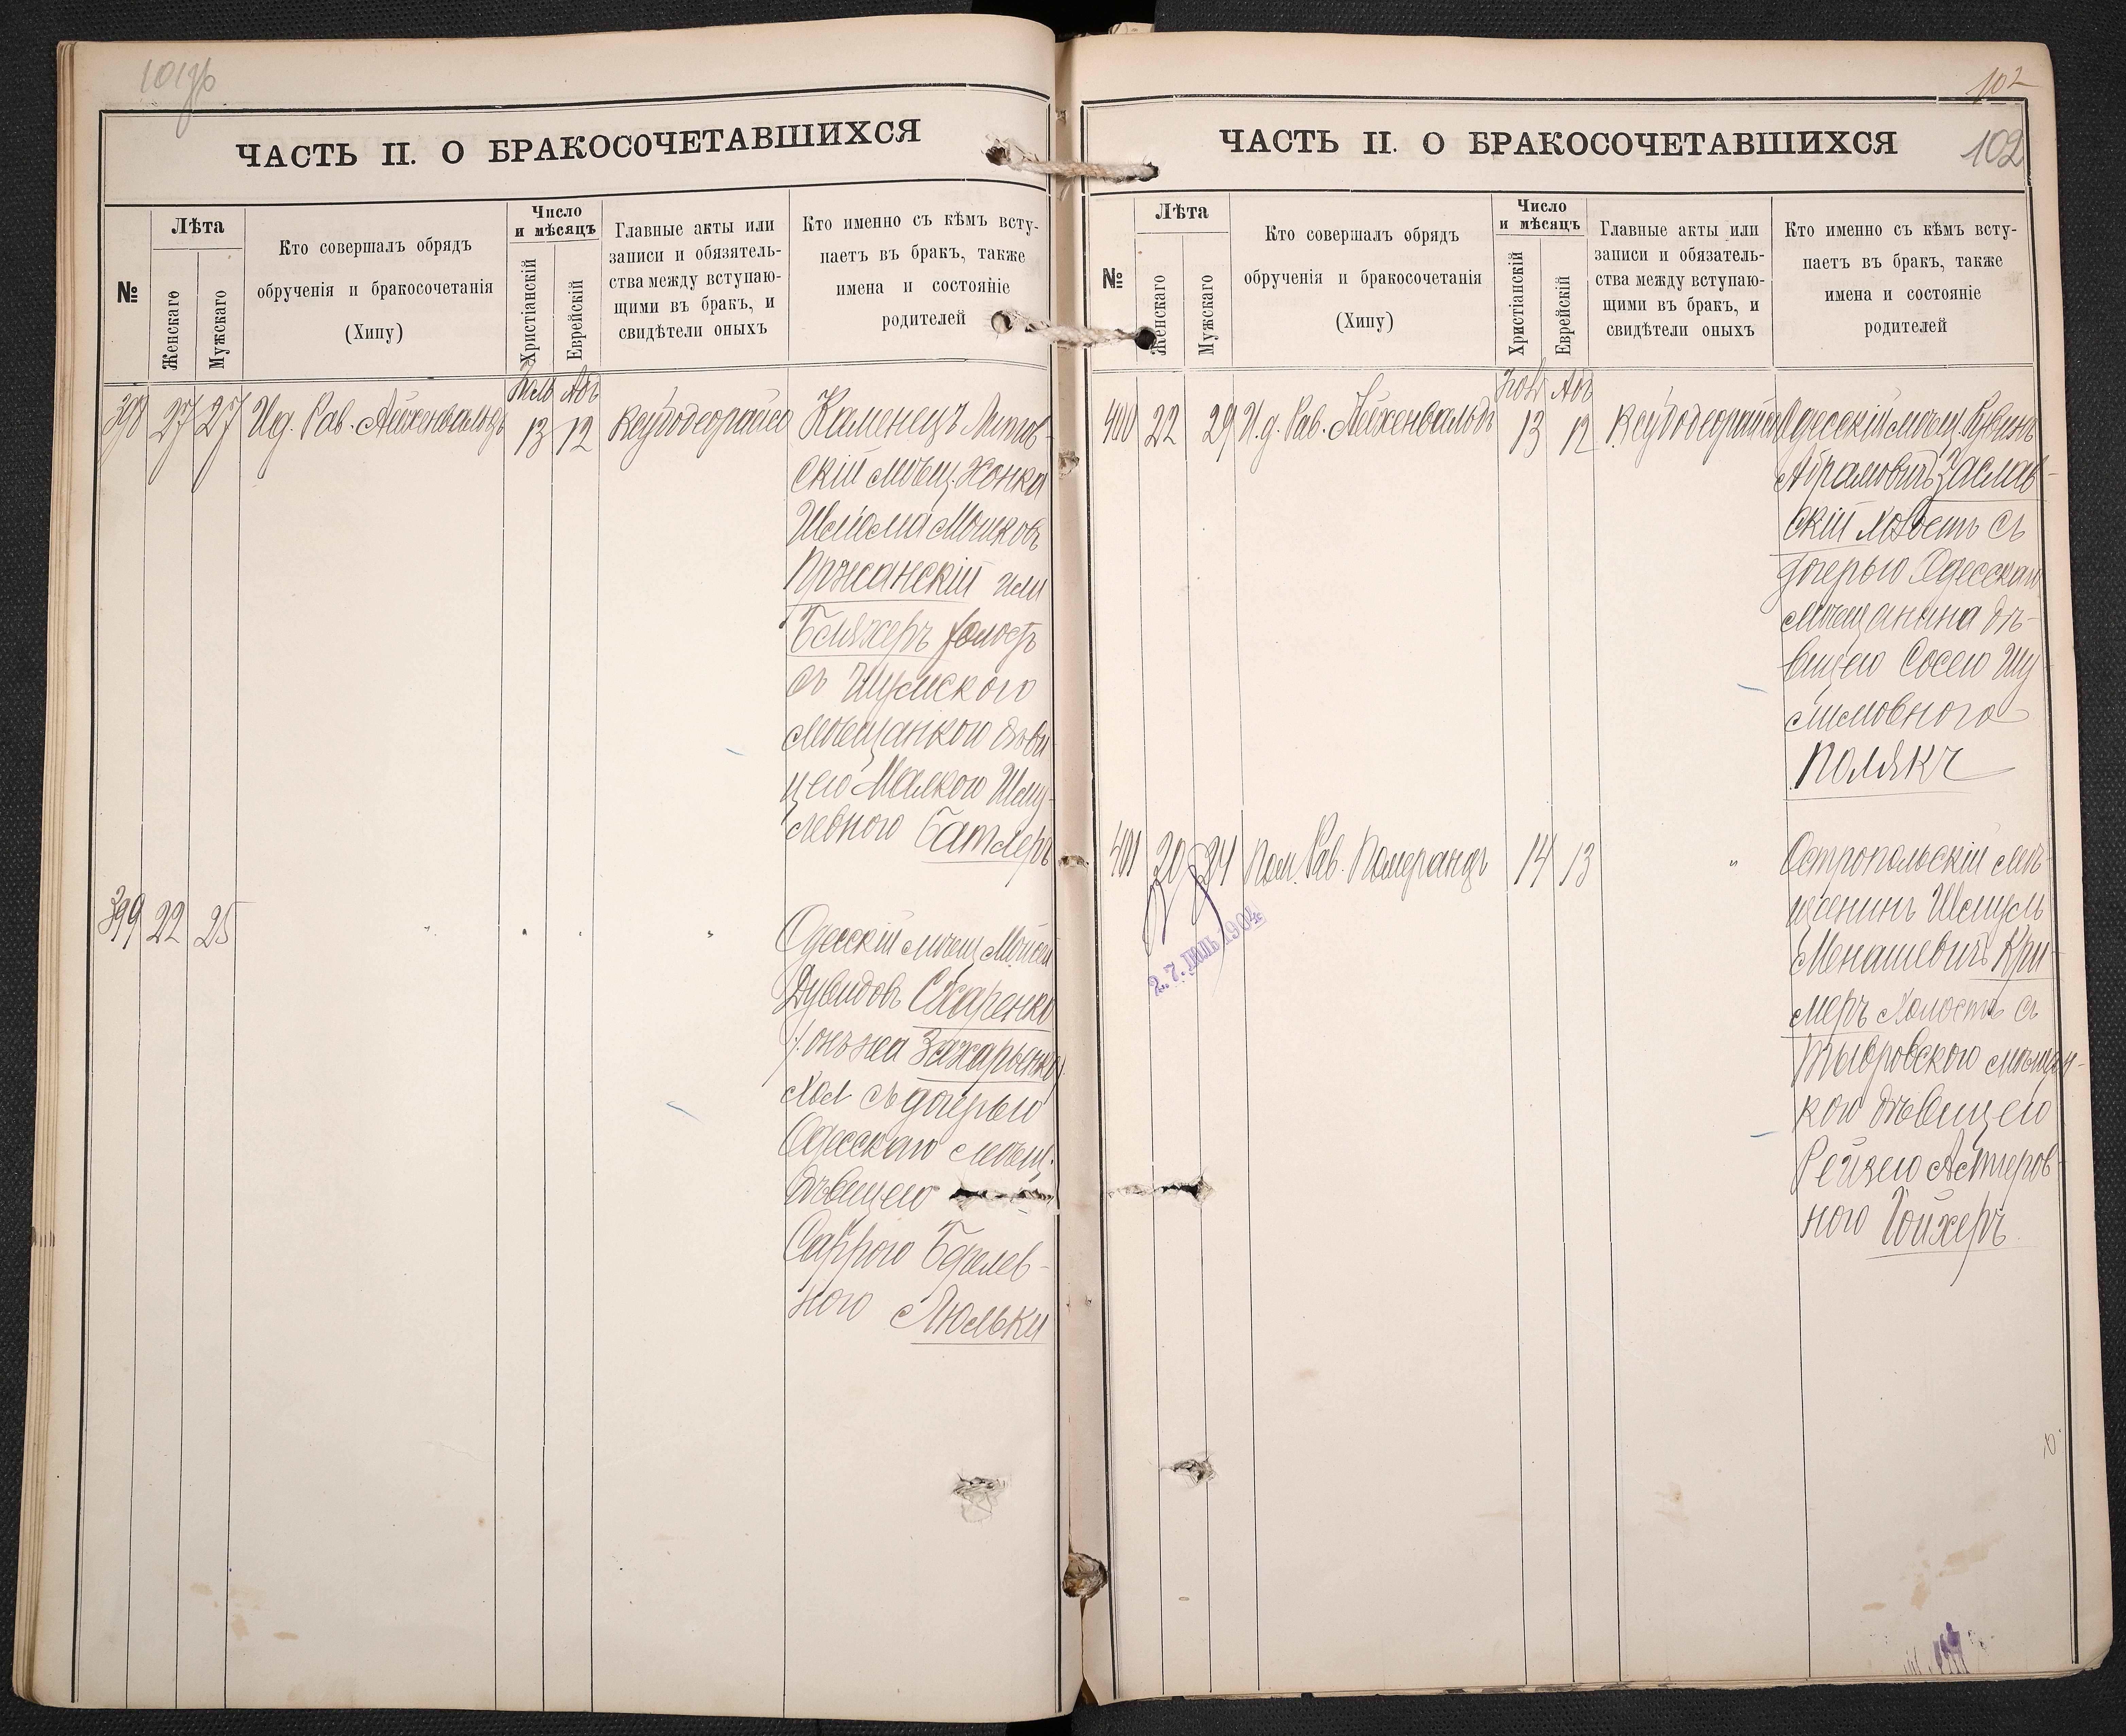 101 об
ЧАСТЬ II. О БРАКОСОЧЕТАВШИХСЯ
№
Лѣта
Женскаго
Мужскаго
Кто совершалъ обрядъ
обрученія и бракосочетанія
(Хипу)
Число
и мѣсяцъ
Христіанскій
Еврейскій
Главные акты или
записи и обязатель-
ства между вступаю-
щими въ бракъ, и
свидѣтели оныхъ
Кто именно съ кѣмъ всту-
паетъ въ бракъ, также
имена и состояніе
родителей
Іюль Авъ
398 27 27 И.д. Рав. Айхенвальдъ 13 12
Каменецъ Литов-
скій мѣщ. Хонка
Шліома Мошковъ
Пружанскій или
холостъ
съ Шумскою
мѣщанкою дѣви-
цею Малкою Шму-
левною Батлеръ
399 22 25 " " " "
Одесскій мѣщ. Мойсей
Дувидовъ Сахаренко
(онъ же Захарьенко)
хол съ дочерью
Одесскаго мѣщ.
дѣвицею
Суррою
ною Люльки
102
ЧАСТЬ II. О БРАКОСОЧЕТАВШИХСЯ
102
№
Лѣта
Женскаго
Мужскаго
Кто совершалъ обрядъ
обрученія и бракосочетанія
(Хипу)
Число
и мѣсяцъ
Христіанскій
Еврейскій
Главные акты или
записи и обязатель-
ства между вступаю-
щими въ бракъ, и
свидѣтели оныхъ
Кто именно съ кѣмъ всту-
паетъ въ бракъ, также
имена и состояніе
родителей
Іюль Авъ
400 22 29 И.д. Рав. Айхенвальдъ 13 12
Одесскій мѣщ. Рувинъ
Абрамовичъ Заслав-
скій холостъ съ
дочерью Одесскаго
мѣщанина дѣ-
вицею Сосею Шу-
лимовною
Полякъ
401 20 24 Пом. Рав. Померанцъ 14 13 "
Остропольскій мѣ-
щанинъ Шмуль
Менашевичъ Кри-
меръ холостъ съ
Тывровскою мѣщан-
кою дѣвицею
Рейзею Астеров-
ною Гойхеръ
27. ІЮЛЬ 1904